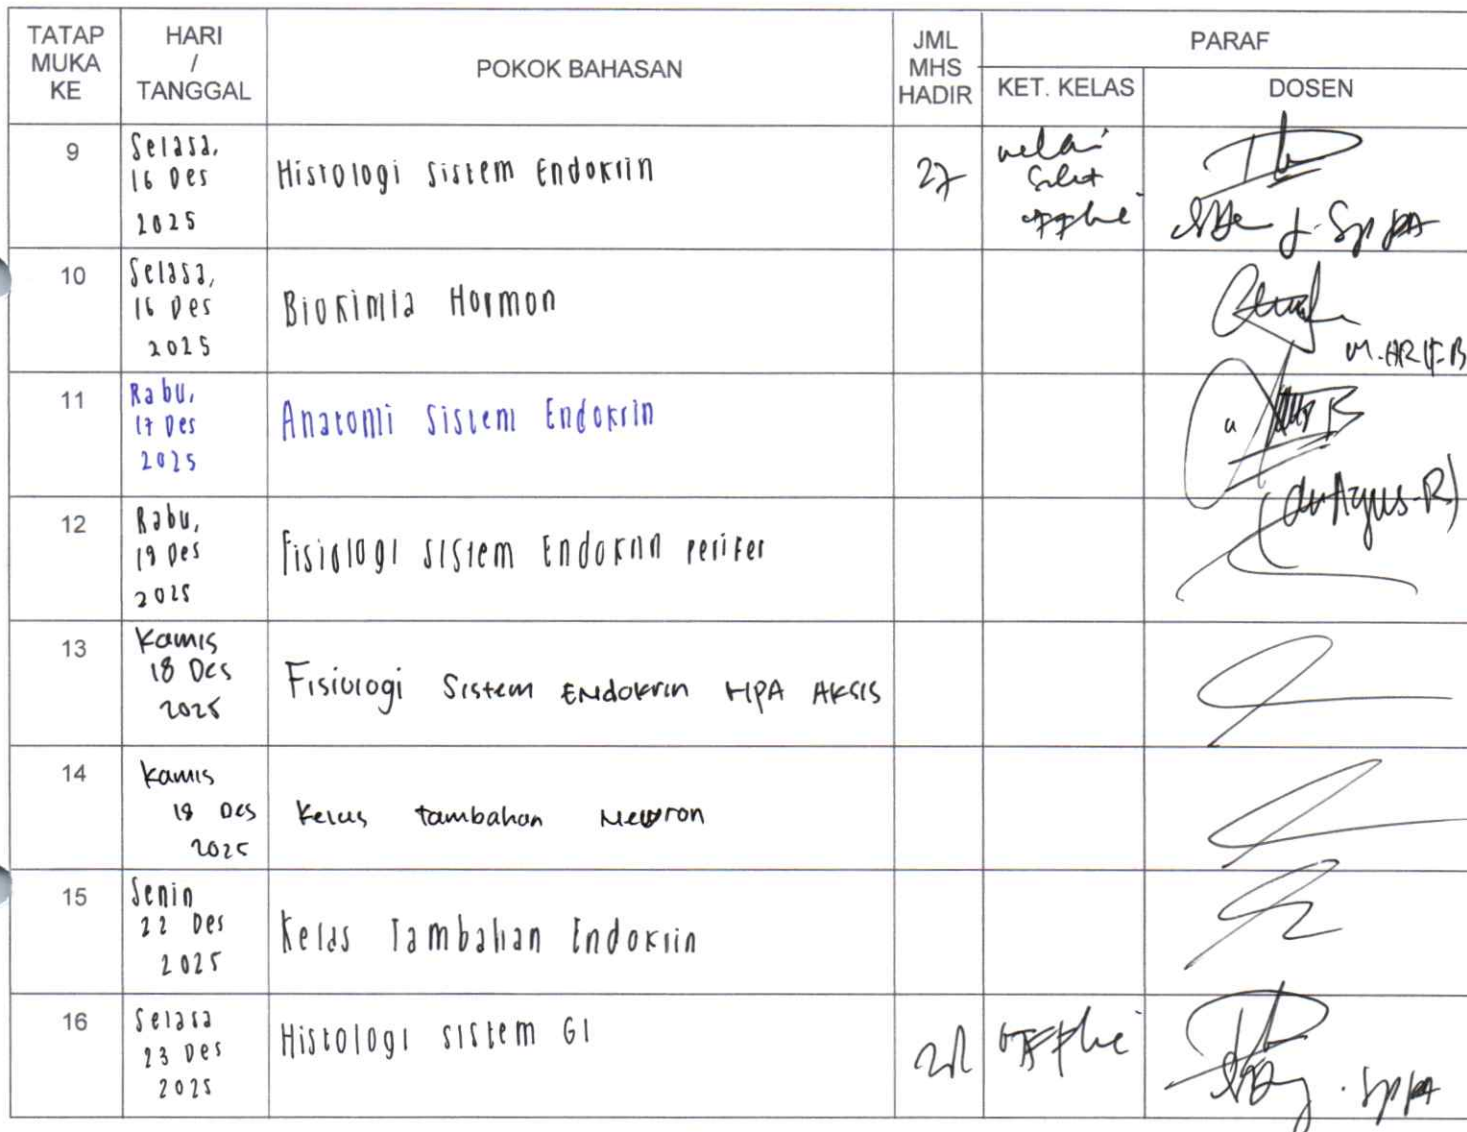 TATAP MUKA KE
HARI / TANGGAL
POKOK BAHASAN
JML MHS HADIR
PARAF
KET. KELAS
DOSEN
9
Selasa, 16 Des 2025
Histologi Sistem Endokrin
27
offline
Sp PA
10
Selasa, 16 Des 2025
Biokimia Hormon
M. ARIF. B
11
Rabu, 17 Des 2025
Anatomi Sistem Endokrin
(dr Agus. R)
12
Rabu, 19 Des 2025
Fisiologi Sistem Endokrin Perifer
13
Kamis 18 Des 2025
Fisiologi Sistem Endokrin HPA AKSIS
14
Kamis 18 Des 2025
Kelas tambahan Neuron
15
Senin 22 Des 2025
Kelas Tambahan Endokrin
16
Selasa 23 Des 2025
Histologi sistem GI
offline
Sp PA